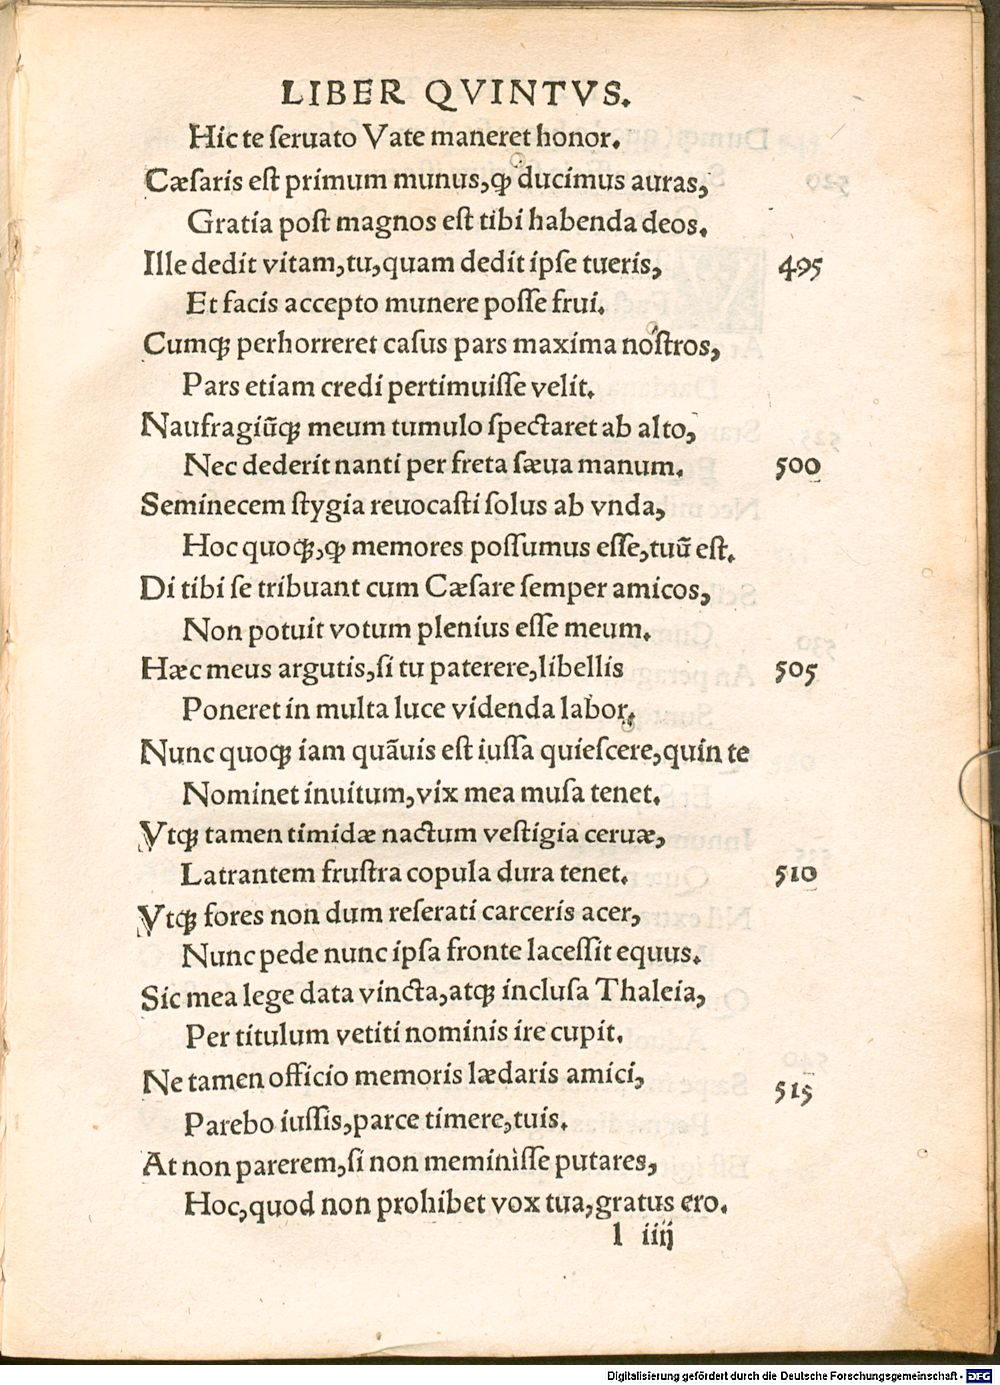 LIBER QVINTVS.
Hic te ſeruato Vate maneret honor.
Cæſaris eſt primum munus, ꝙ ducimus auras,
Gratia poſt magnos eſt tibi habenda deos.
Ille dedit vitam, tu, quam dedit ipſe tueris,
495
Et facis accepto munere poſſe frui.
Cumqꝫ perhorreret caſus pars maxima noſtros,
Pars etiam credi pertimuiſſe velit.
Naufragiūqꝫ meum tumulo ſpectaret ab alto,
Nec dederit nanti per freta ſæua manum.
500
Seminecem ſtygia reuocaſti ſolus ab vnda,
Hoc quoqꝫ, ꝙ memores poſſumus eſſe, tuū eſt.
Di tibi ſe tribuant cum Cæſare ſemper amicos,
Non potuit votum plenius eſſe meum.
Hæc meus argutis, ſi tu paterere, libellis
505
Poneret in multa luce videnda labor.
Nunc quoqꝫ iam quāuis eſt iuſſa quieſcere, quin te
Nominet inuitum, vix mea muſa tenet.
Vtqꝫ tamen timidæ nactum veſtigia ceruæ,
Latrantem fruſtra copula dura tenet.
510
Vtqꝫ fores non dum reſerati carceris acer,
Nunc pede nunc ipſa fronte laceſſit equus.
Sic mea lege data vincta, atqꝫ incluſa Thaleia,
Per titulum vetiti nominis ire cupit.
Ne tamen officio memoris lædaris amici,
515
Parebo iuſſis, parce timere, tuis.
At non parerem, ſi non meminiſſe putares,
Hoc, quod non prohibet vox tua, gratus ero.
l iiij
Digitalisierung gefördert durch die Deutsche Forschungsgemeinschaft - DFG